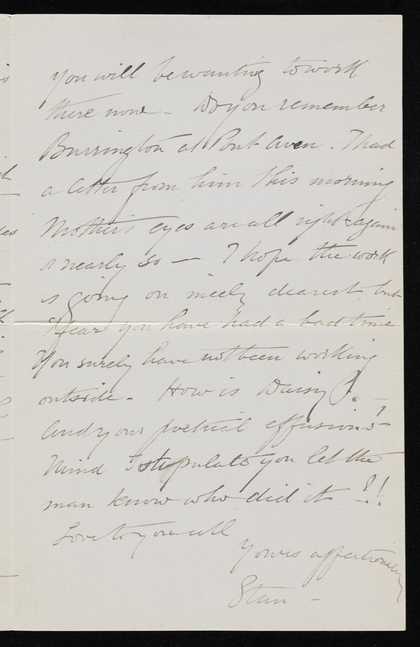 you will be wanting to work
there now - Do you remember
Burrington at Pont Aven. I had
a letter from him this morning
Mother's eyes are all right again
or nearly so — I hope the work
is going on nicely dearest but
I fear you have had a bad time
You surely have not been working
outside - How is Daisy P. -
And your poetical effusions!
Mind I stipulate you let the
man know who did it ?!!
Love to you all
Yours affectionately
Stan -